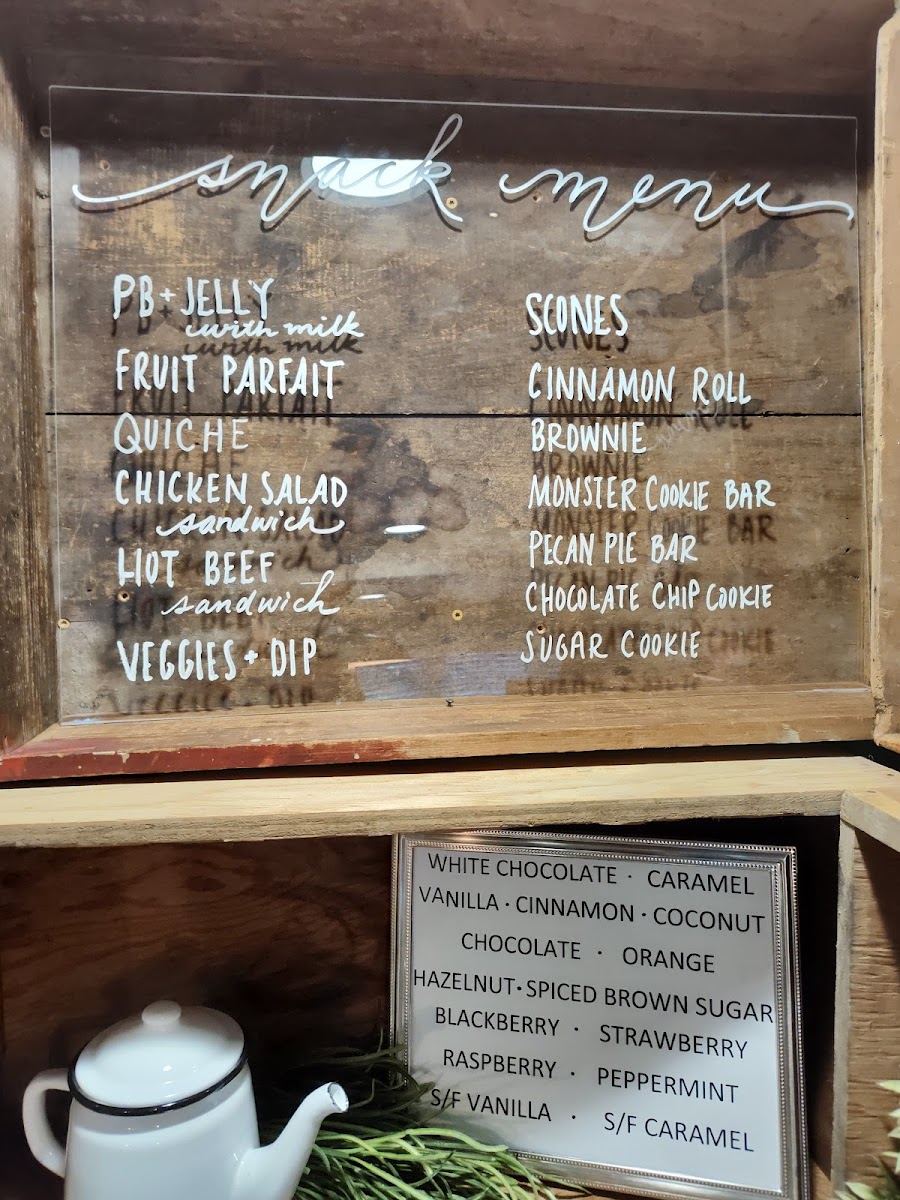 snack menu
PB + JELLY
with milk
FRUIT PARFAIT
QUICHE
CHICKEN SALAD
sandwich
HOT BEEF
sandwich
VEGGIES + DIP
SCONES
CINNAMON ROLL
BROWNIE
MONSTER COOKIE BAR
PECAN PIE BAR
CHOCOLATE CHIP COOKIE
SUGAR COOKIE
WHITE CHOCOLATE · CARAMEL
VANILLA · CINNAMON · COCONUT
CHOCOLATE · ORANGE
HAZELNUT · SPICED BROWN SUGAR
BLACKBERRY · STRAWBERRY
RASPBERRY · PEPPERMINT
S/F VANILLA · S/F CARAMEL